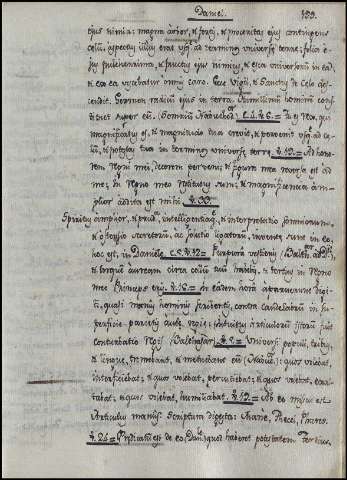 Daniel. 199.
ejus nimia: magna arbor, & fortis, & proceritas ejus contingens
celum, aspectus illius erat usq. ad terminos universe terrae: folia e-
jus pulcherrima, & fructus ejus nimius, & esca universorum in ea,
& ex ea vescebatur omnis caro. Ecce vigil, & Sanctus de celo des-
cendit. Germen radicum ejus in terra. Similitudinem hominis
super eum. (Somnium Nabuchod.) c. 4. 6. = Tu es Rex, qui
magnificatus es, & magnitudo tua crevit, & pervenit usq. ad ce-
lum, & potestas tua in terminos universe terre. 19. = Ad hono-
rem Regni mei, decorem perveni; & figura mea reversa est ad
me; in Regno meo restitutus sum; & magnificentia am-
plior addita est mihi. 33.
Spiritus amplior, & prud. intelligentiaq., & interpretatio somniorum,
& ostensio secretorum, ac solutio ligatorum, inventae sunt in eo,
hoc est, in Daniele. c. 5. 12 = Purpura vestieris,
& torquem auream circa collum tuum habebis, & tertius in Regno
meo Princeps eris. 16. = in eadem hora apparuerunt digiti,
quasi manus hominis scribentis, contra candelabrum in su-
perficie parietis aulae regiae:
conturbatio Regis Balthasar. 5. = Universi populi, tribus,
& lingue, tremebant, & metuebant eum (Nabuc.): quos volebat,
interficiebat; & quos volebat, percutiebat; & quos volebat, exal-
tabat; & quos volebat, humiliabat. 19. = Ab eo missus est
articulus manus. Scriptura digesta: Mane, Thecel, Phares.
24 = Predicatum est de eo, Dan. quod haberet potestatem tertius.